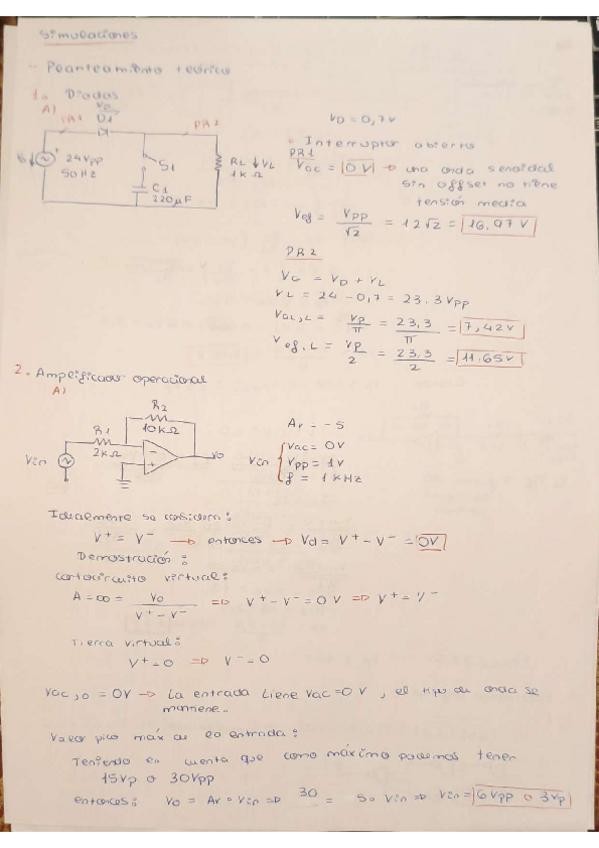 Simulaciones
- Peanteamiento teórico
1. Diodos
A)
PR1
D1
PR2
24Vpp
50Hz
S1
C1
220µF
RL ↓ VL
1kΩ
VD = 0,7v
Interruptor abierto
PR1
Vdc = 0V → una onda senoidal
sin offset no tiene
tensión media
Vef = Vpp/√2 = 12√2 = 16,97 V
PR2
VG = VD + VL
VL = 24 - 0,7 = 23.3 Vpp
VdcL,L = Vp/π = 23,3/π = 7,42V
Vef,L = Vp/2 = 23.3/2 = 11.65V
2. Amplificador operacional
A)
R2
10kΩ
R1
2kΩ
Vin
Vo
Av = -5
Vin { Vdc = 0V
Vpp = 1V
f = 1kHz
Idealmente se considera:
V+ = V- → entonces → Vd = V+ - V- = 0V
Demostración:
Cortocircuito virtual:
A = ∞ = Vo/(V+ - V-) ⇒ V+ - V- = 0V ⇒ V+ = V-
Tierra virtual:
V+ = 0 ⇒ V- = 0
Vdc,o = 0V → La entrada tiene Vdc = 0V, el tipo de onda se
mantiene.
Valor pico máx de la entrada:
Teniendo en cuenta que como máximo podemos tener
15Vp o 30Vpp
entonces: Vo = Av · Vin ⇒ 30 = 5 · Vin ⇒ Vin = 6Vpp o 3Vp